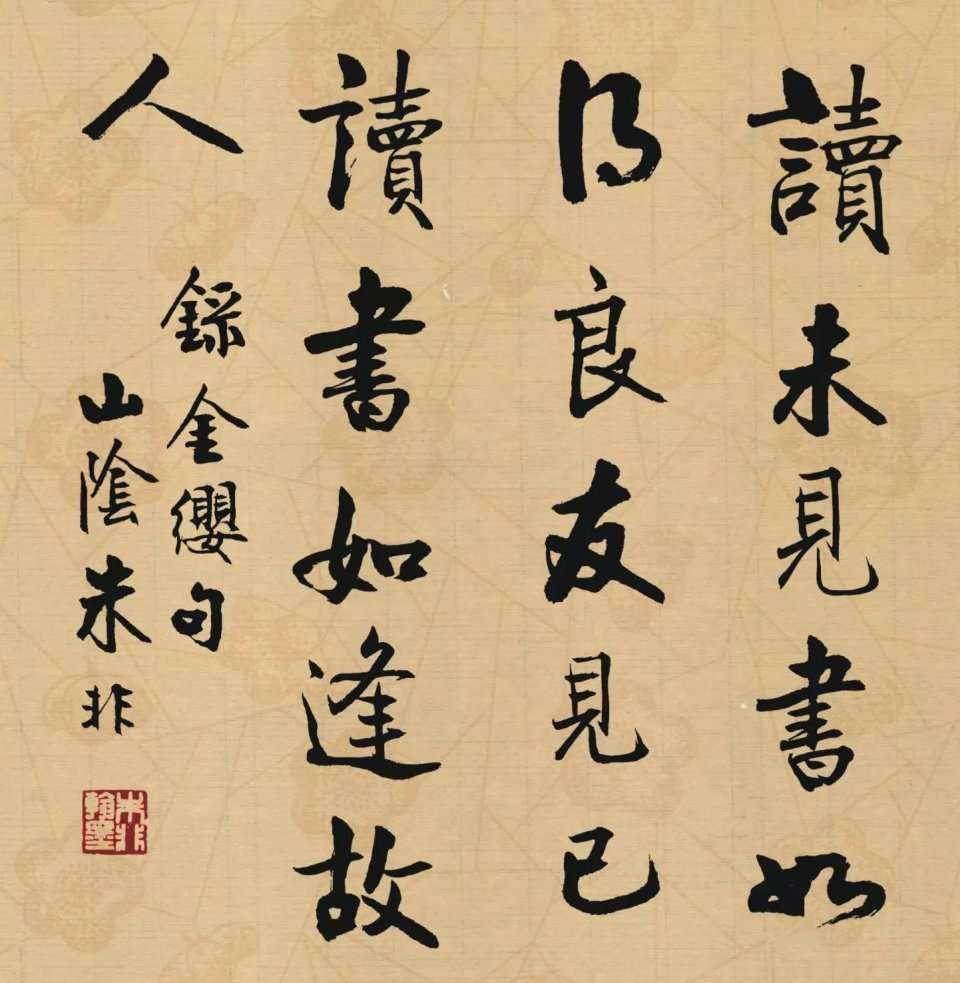 讀未見書如
得良友見已
讀書如逢故
人
錄金纓句
山陰朱非
朱非翰墨